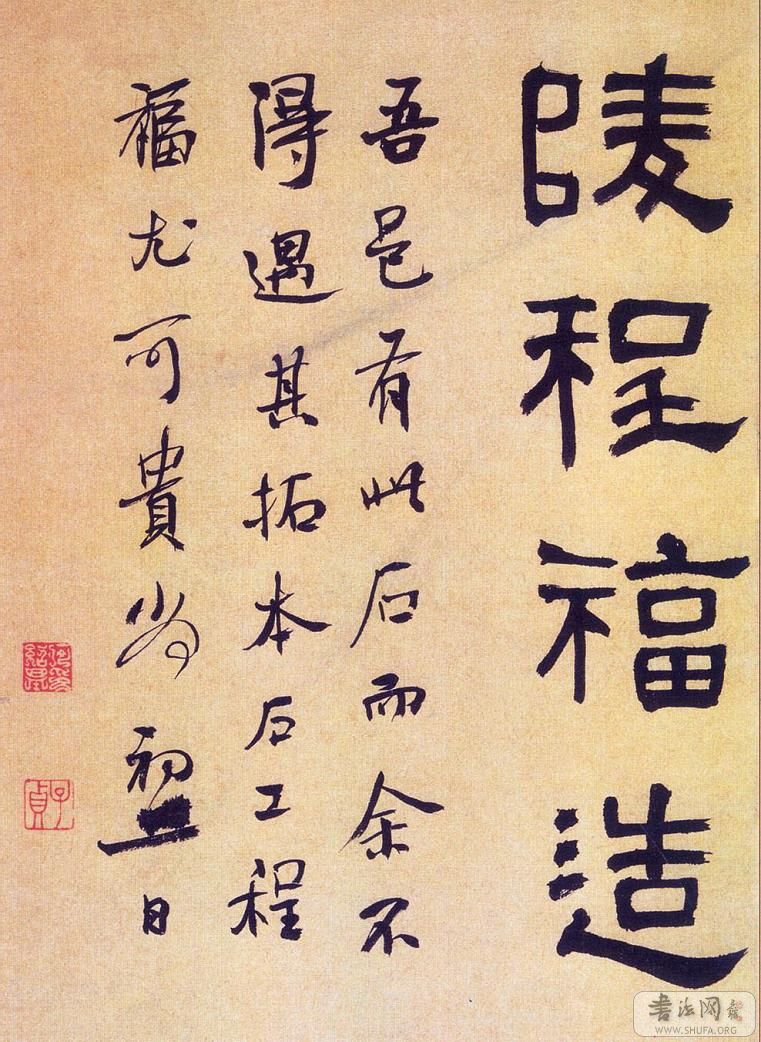 陵程福造
吾邑有此石而余不
得遇其拓本石工程
福尤可貴 初 日
何 紹基
子貞
書法网
WWW.SHUFA.ORG